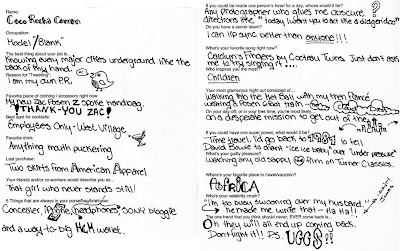 Name:
Coco Rocha Conran
Occupation:
Model / "Blank"
The best thing about your job is...
Knowing every major cities underground like the
back of my hand.
Reason for "Tweeting":
I am my own P.R.
Favorite piece of clothing / accessory right now:
My new Zac Posen Z spoke handbag.
THANK-YOU ZAC!
Best spot for cocktails:
Employees Only - West Village
Favorite dish is:
Anything mouth puckering
Last purchase:
Two skirts from American Apparel
Your friends and/or co-workers would describe you as...
That girl who never stands still!
5 Things that are always in your purse/bag/briefcase:
Concealer, Phone, headphones, SONY bloggie
and a way-to big H&M wallet.
If you could be inside one person's head for a day, whose would it be?
Any photographer who gives me obscure
directions like "Today I want you to act like a didgeridoo"
Do you have a secret talent?
I can lip sync better then anyone!!!
What's your favorite song right now?
Carolyn's Fingers by Cocteau Twins. Just don't ask
me to try singing it...
Who inspires you the most?
Children
Your most glamorous outfit consisted of...
Walking into the Met Ball with my then fiancé
wearing a Posen
On your day off, or in your free time, you're most likely...
on a desperate mission to get out of the
If you could have one super power, what would it be?
Time travel. I'd go back to
David Bowie to stomp "ice ice baby" "under pressure"
What's your guilty pleasure?
Watching any old sappy film on Turner Classics.
What's your favorite place to travel/vacation?
AFRICA
Who's your celebrity crush?
"I'm too busy swooning over my husband."
he made me write that - Ha Ha!!
The one trend that you should never, EVER come back is...
Oh they will all end up coming back.
Don't fight it!! P.S. UGGS!!